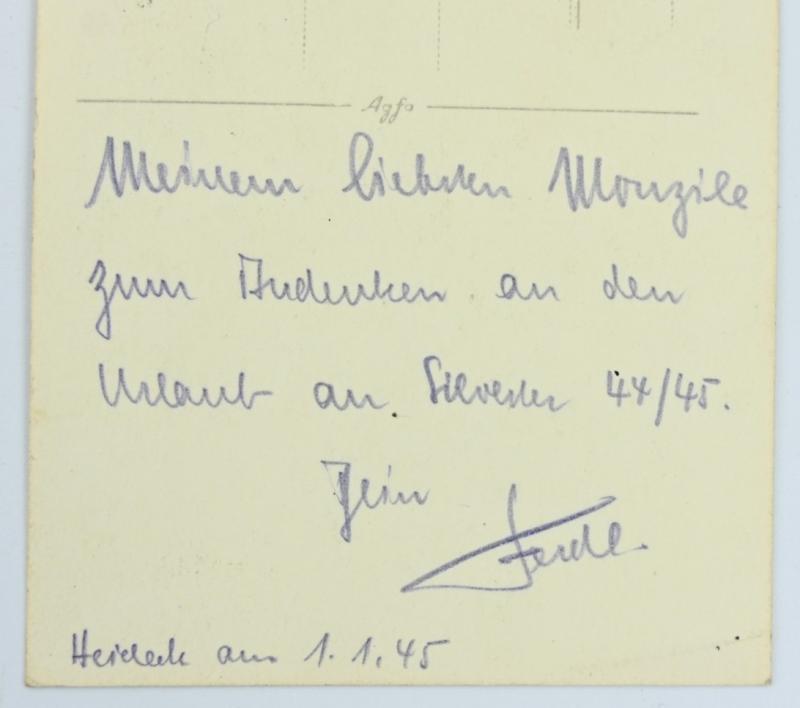 Agfa
Meinem liebsten Monzile
zum Andenken an den
Urlaub an Silvester 44/45.
Dein
Ferdl.
Heideck am 1.1.45